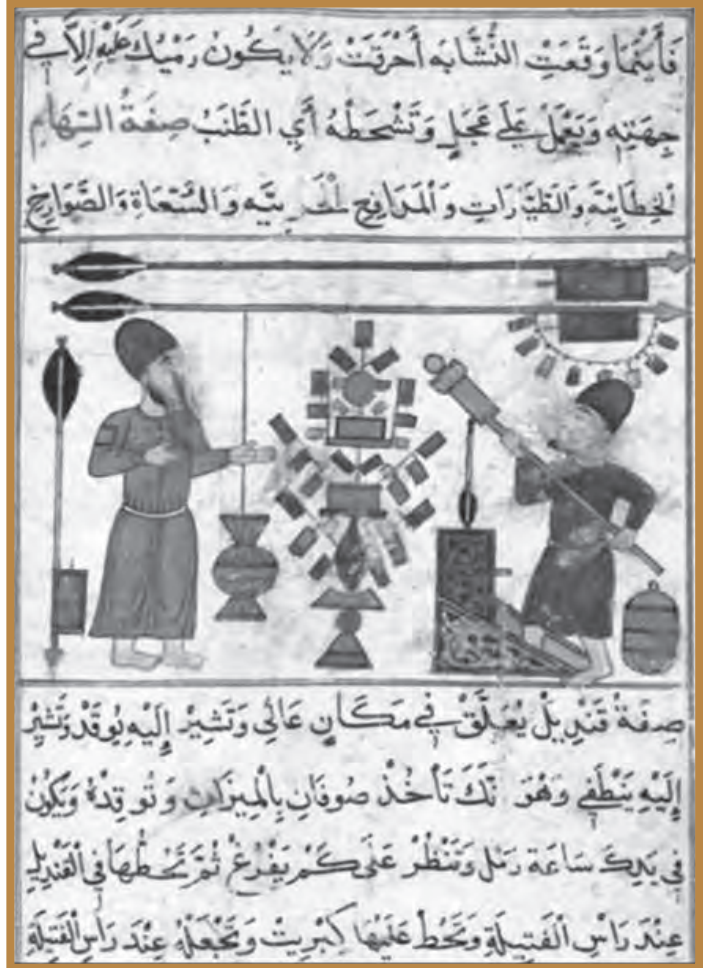 فَأَيْنَمَا وَقَعَتِ النُّشَّابَه أَحْرَقَتْ وَلَا يَكُونُ رَمْيُكَ عَلَيْهِ إِلَّا فِي
جِهَتِهِ وَيَعْمَلْ عَلَى عَجَلٍ وَتَشْحَطْهُ أَيِ الظَّنَبُ صِفَةُ السِّهَامِ
الْخِطَائِيَّةِ وَالطَّيَّارَاتِ وَالْمَدَافِعِ وَالسُّعَاةِ وَالصَّوَارِخِ
صِفَةُ قَنْدِيلْ يُعَلَّقْ فِي مَكَانٍ عَالِي وَتَشِيرْ إِلَيْهِ يُوقَدْ وَتُشِيرْ
إِلَيْهِ يَنْطَفِي وَهُوَ تَأْخُذْ صُوفَانِ بِالْمِيزَانِ وَتُوقِدْهُ وَيَكُونُ
فِي يَدِكَ سَاعَة رَمْل وَتَنْظُرْ عَلَى كَمْ يَفْرُغْ ثُمَّ تَحُطُّهَا فِي الْقَنْدِيلِ
عِنْدَ رَاسِ الْفَتِيلَةِ وَتَحُطْ عَلَيْهَا كِبْرِيتْ وَتَجْعَلْهُ عِنْدَ رَاسِ الْفَتِيلَةِ